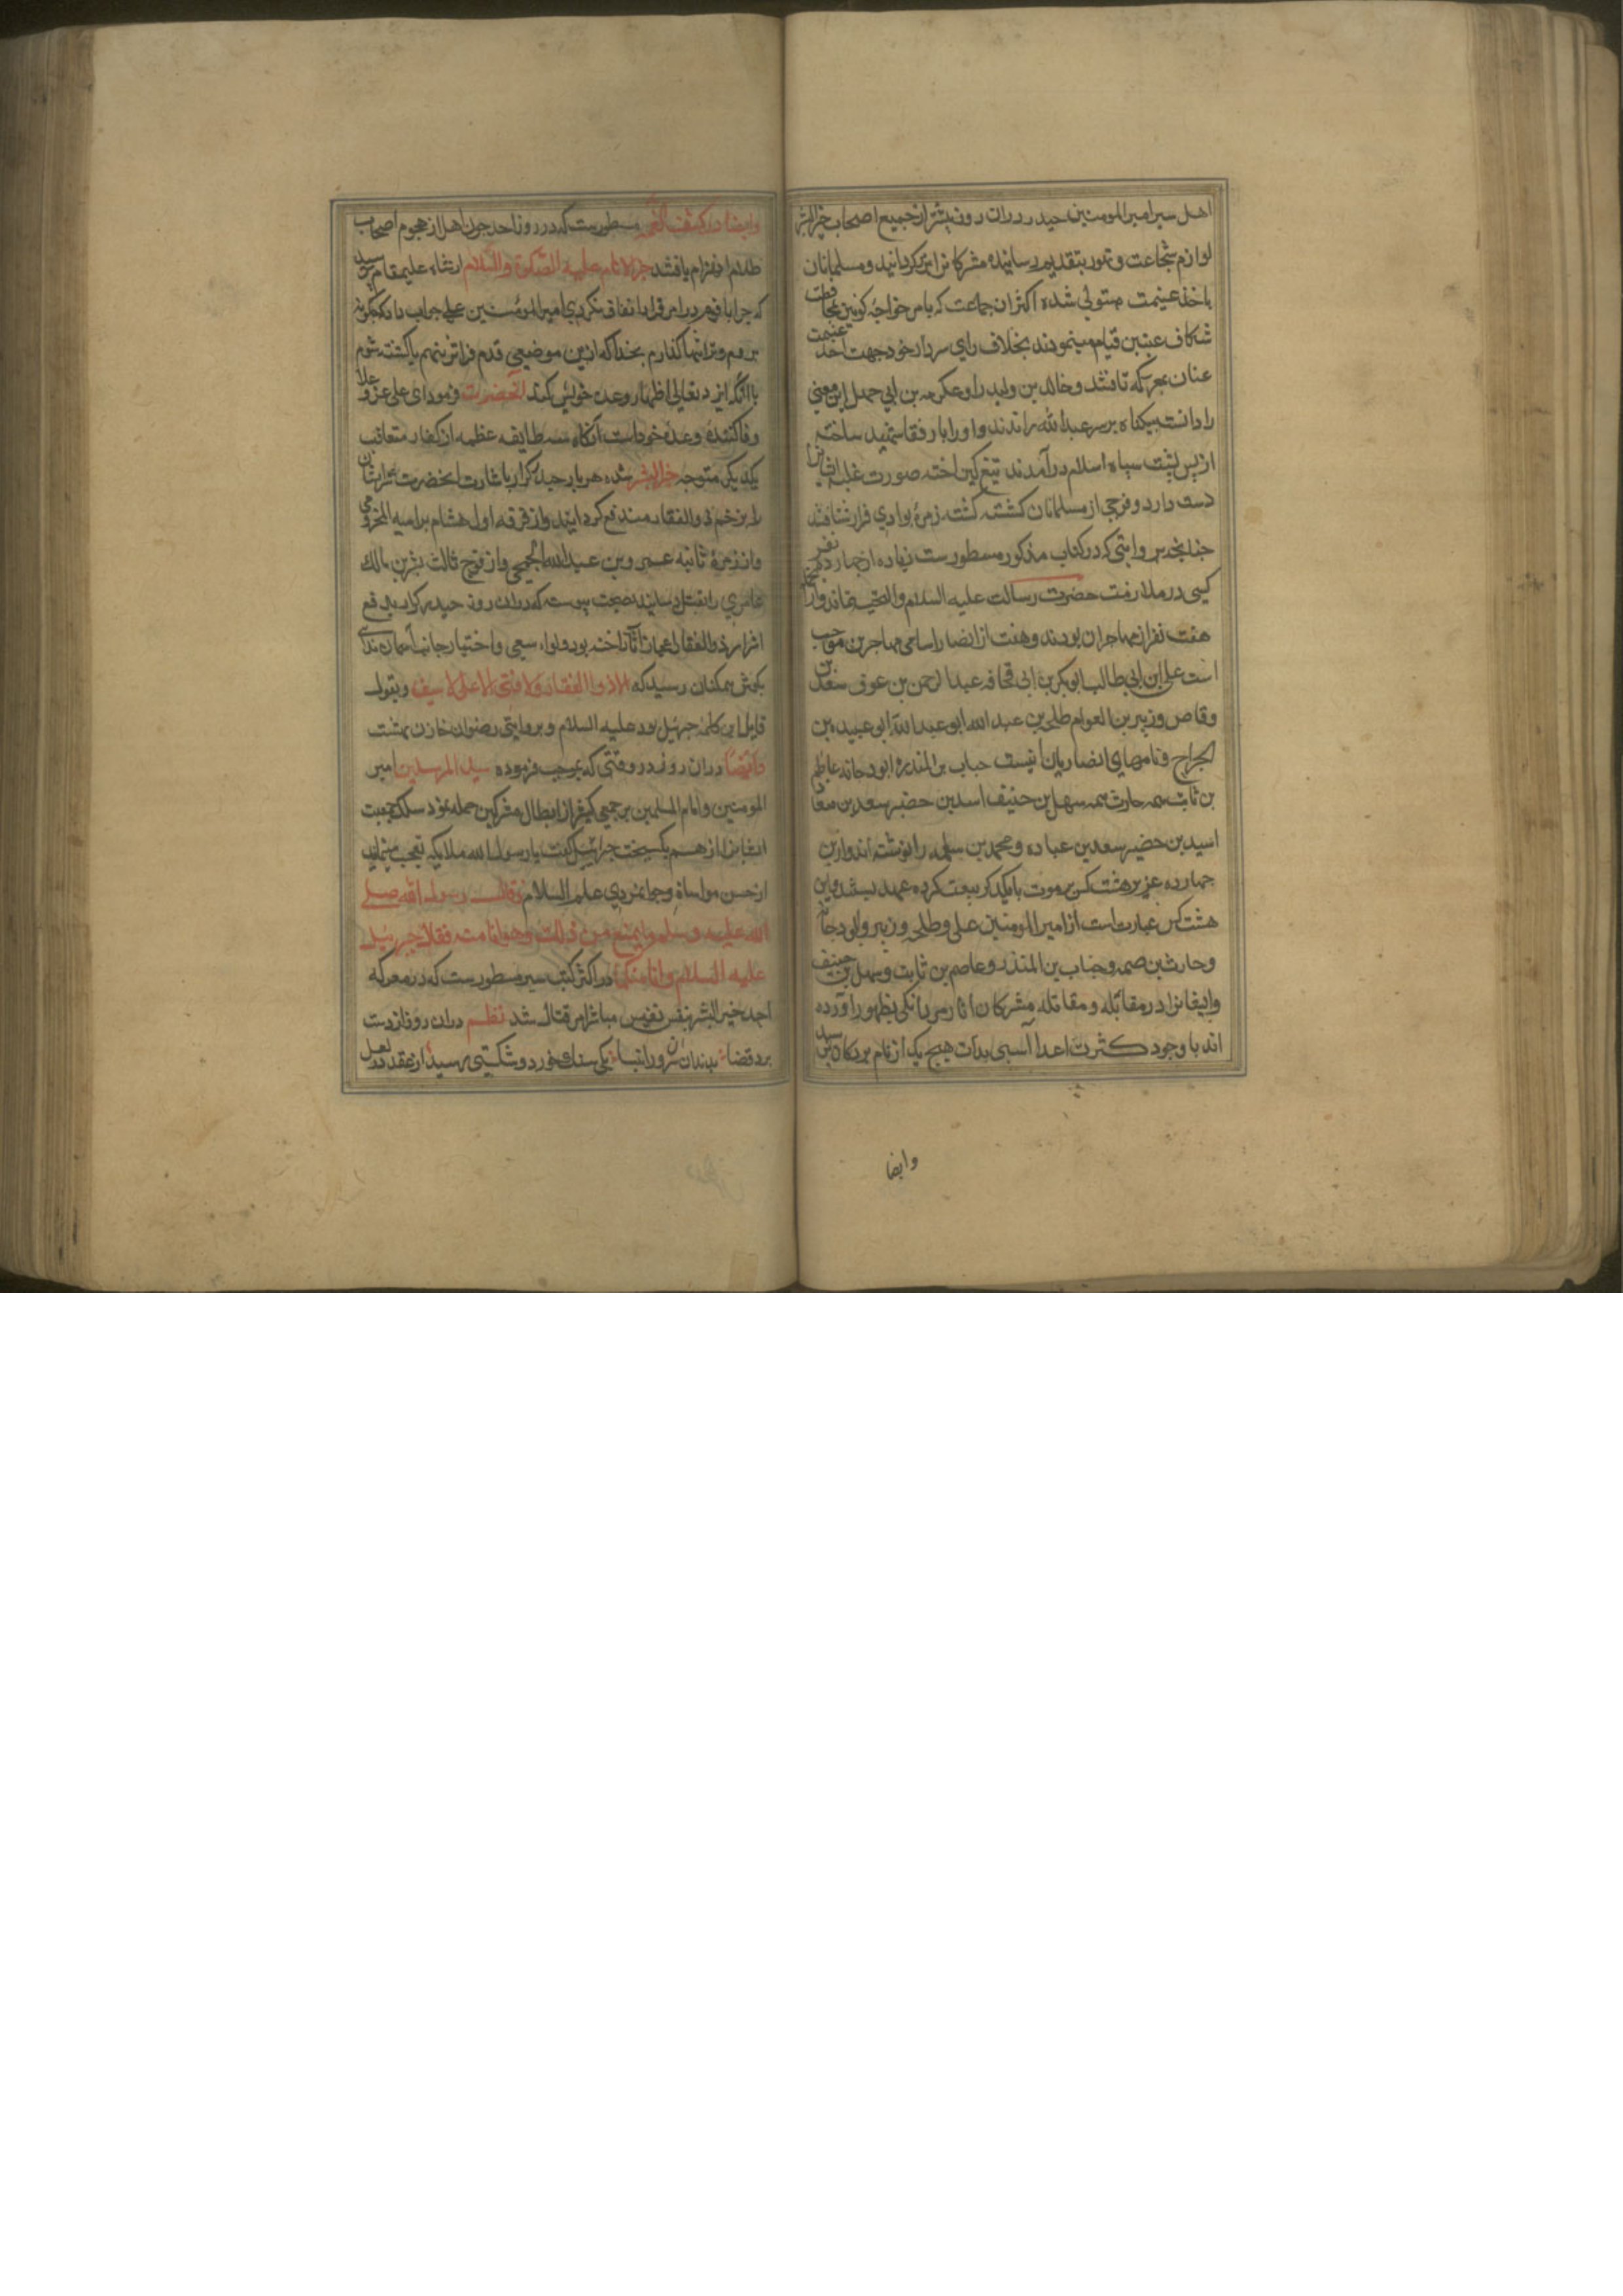 اهل سیر امیر المومنین حیدر دران روز بیشتر از جمیع اصحاب خیر البشر
لوازم شجاعت و تهور بتقدیم رسانیده مشرکانرا ابتر کردانید و مسلمانان
باخذ غنیمت متولی شده اکثر ان جماعت که بامر خواجه کونین بمحافظت
شکاف عینین قیام مینمودند بخلاف رای سردار خود جهت اخذ غنیمت
عنان بمعرکه تافتند و خالد بن ولید را و عکرمه بن ابی جهل این معنی
را دانسته بیکناه برسر عبدالله راندند و اورا با رفقا شهید ساخته
از پس پشت سپاه اسلام درآمدند تیغ کین اخته صورت غلبه ایشانرا
دست داد و فوجی از مسلمانان کشته کشته زمرهٔ بوادی فرار شتافتند
چنانچه بروایتی که در کتاب مذکور مسطورست زیاده از چهارده نفر
کسی در ملازمت حضرت رسالت علیه السلام والتحیه نماند و ازانجمله
هفت نفر از مهاجران بودند و هفت از انصار اسامی مهاجرین موجب
است علی ابن ابی طالب ابوبکر بن ابی قحافه عبدالرحمن بن عوف سعد بن
وقاص و زبیر بن العوام طلحه بن عبدالله ابو عبدالله ابی عبیده بن
الجراح و نامهای انصاریان اینست حباب بن المنذره ابودجانه عاصم
بن ثابت سمه حارث سمه سهل بن حنیف اسد بن حضیر سعد بن معاذ
اسید بن حضیر سعد بن عباده و محمد بن سلمه را نوشته اند و ازین
چهارده عزیز هشت کس بر موت بایکدکر بیعت کرده عهد بستند و این
هشت کس عبارتست از امیر المومنین علی و طلحه و زبیر و ابی دجانه
و حارث بن صمه و حباب بن المنذر و عاصم بن ثابت و سهل بن حنیف
وایشانرا در مقابله و مقاتله مشرکان اثار مردانکی بظهور راورده
اند با وجود کثرت اعدا آسیبی بذات هیچ یک از نام بردکان نرسید
وایضا
وایضا در کشف الغمه مسطورست که در روز احد چون اهل از هجوم اصحاب
ظلام انهزام یافتند خیر الانام علیه الصلوة والسلام از شاه علیمقام پرسید
که چرا با قوم در امر قرار اتفاق نکردی امیر المومنین علی جواب داد که چکونه
بروم و ترا تنها کذارم بخدا که ازین موضعی قدم فراتر ننهم یا کشته شوم
یا انکه ایزد تعالی اظهار وعده خویش کند انحضرت فرمود ای علی عز و علا
وفا کننده وعده خود است آنکاه سه طایفه عظمه از کفار متعاقب
یکدیکر متوجه خیر البشر شده هر بار حیدر کرار باشارت انحضرت شر ایشان
را بزخم ذوالفقار مندفع کردانید و از فرقه اول هشام بر امیه المخزومی
و از زمرهٔ ثانیه عمرو بن عبدالله الجمحی و از فوج ثالث بشر بن مالک
عامری را بقتل رسانید بصحت پیوست که دران روز حیدر کرار بدفع
اشرار بذوالفقار اعجاز آثار اخته بود و لواء سعی و اختیار جانب آسمان ندای
بکوش همکنان رسید که لا ذوالفقار ولا فتی الا علی لا سیف و بقول
قایل این کلمه جبرئیل بود علیه السلام و بروایتی رضوان خازن بهشت
وایضا دران روز در وقتی که بموجب فرموده سید المرسلین امیر
المومنین و امام المسلمین بر جمعی کثیر از ابطال مشرکین حمله نمود سلک جمعیت
ایشانرا از هم بکسیخت جبرائیل کفت یا رسول الله ملایکه تعجب مینمایند
از حسن مواساة و جوانمردی علی علیه السلام فقال رسول الله صلی
الله علیه وسلم وما یمنع من ذلک وهو انا منه فقال جبرئیل
علیه السلام وانا منکما در اکثر کتب سیر مسطورست که در معرکه
احد خیر البشر بنفس نفیس مباشر امر قتال شد نظم دران روز از دست
برد قضا بدندان سرور انبیا یکی سنک خورد و شکستی رسید از عقد در لعل